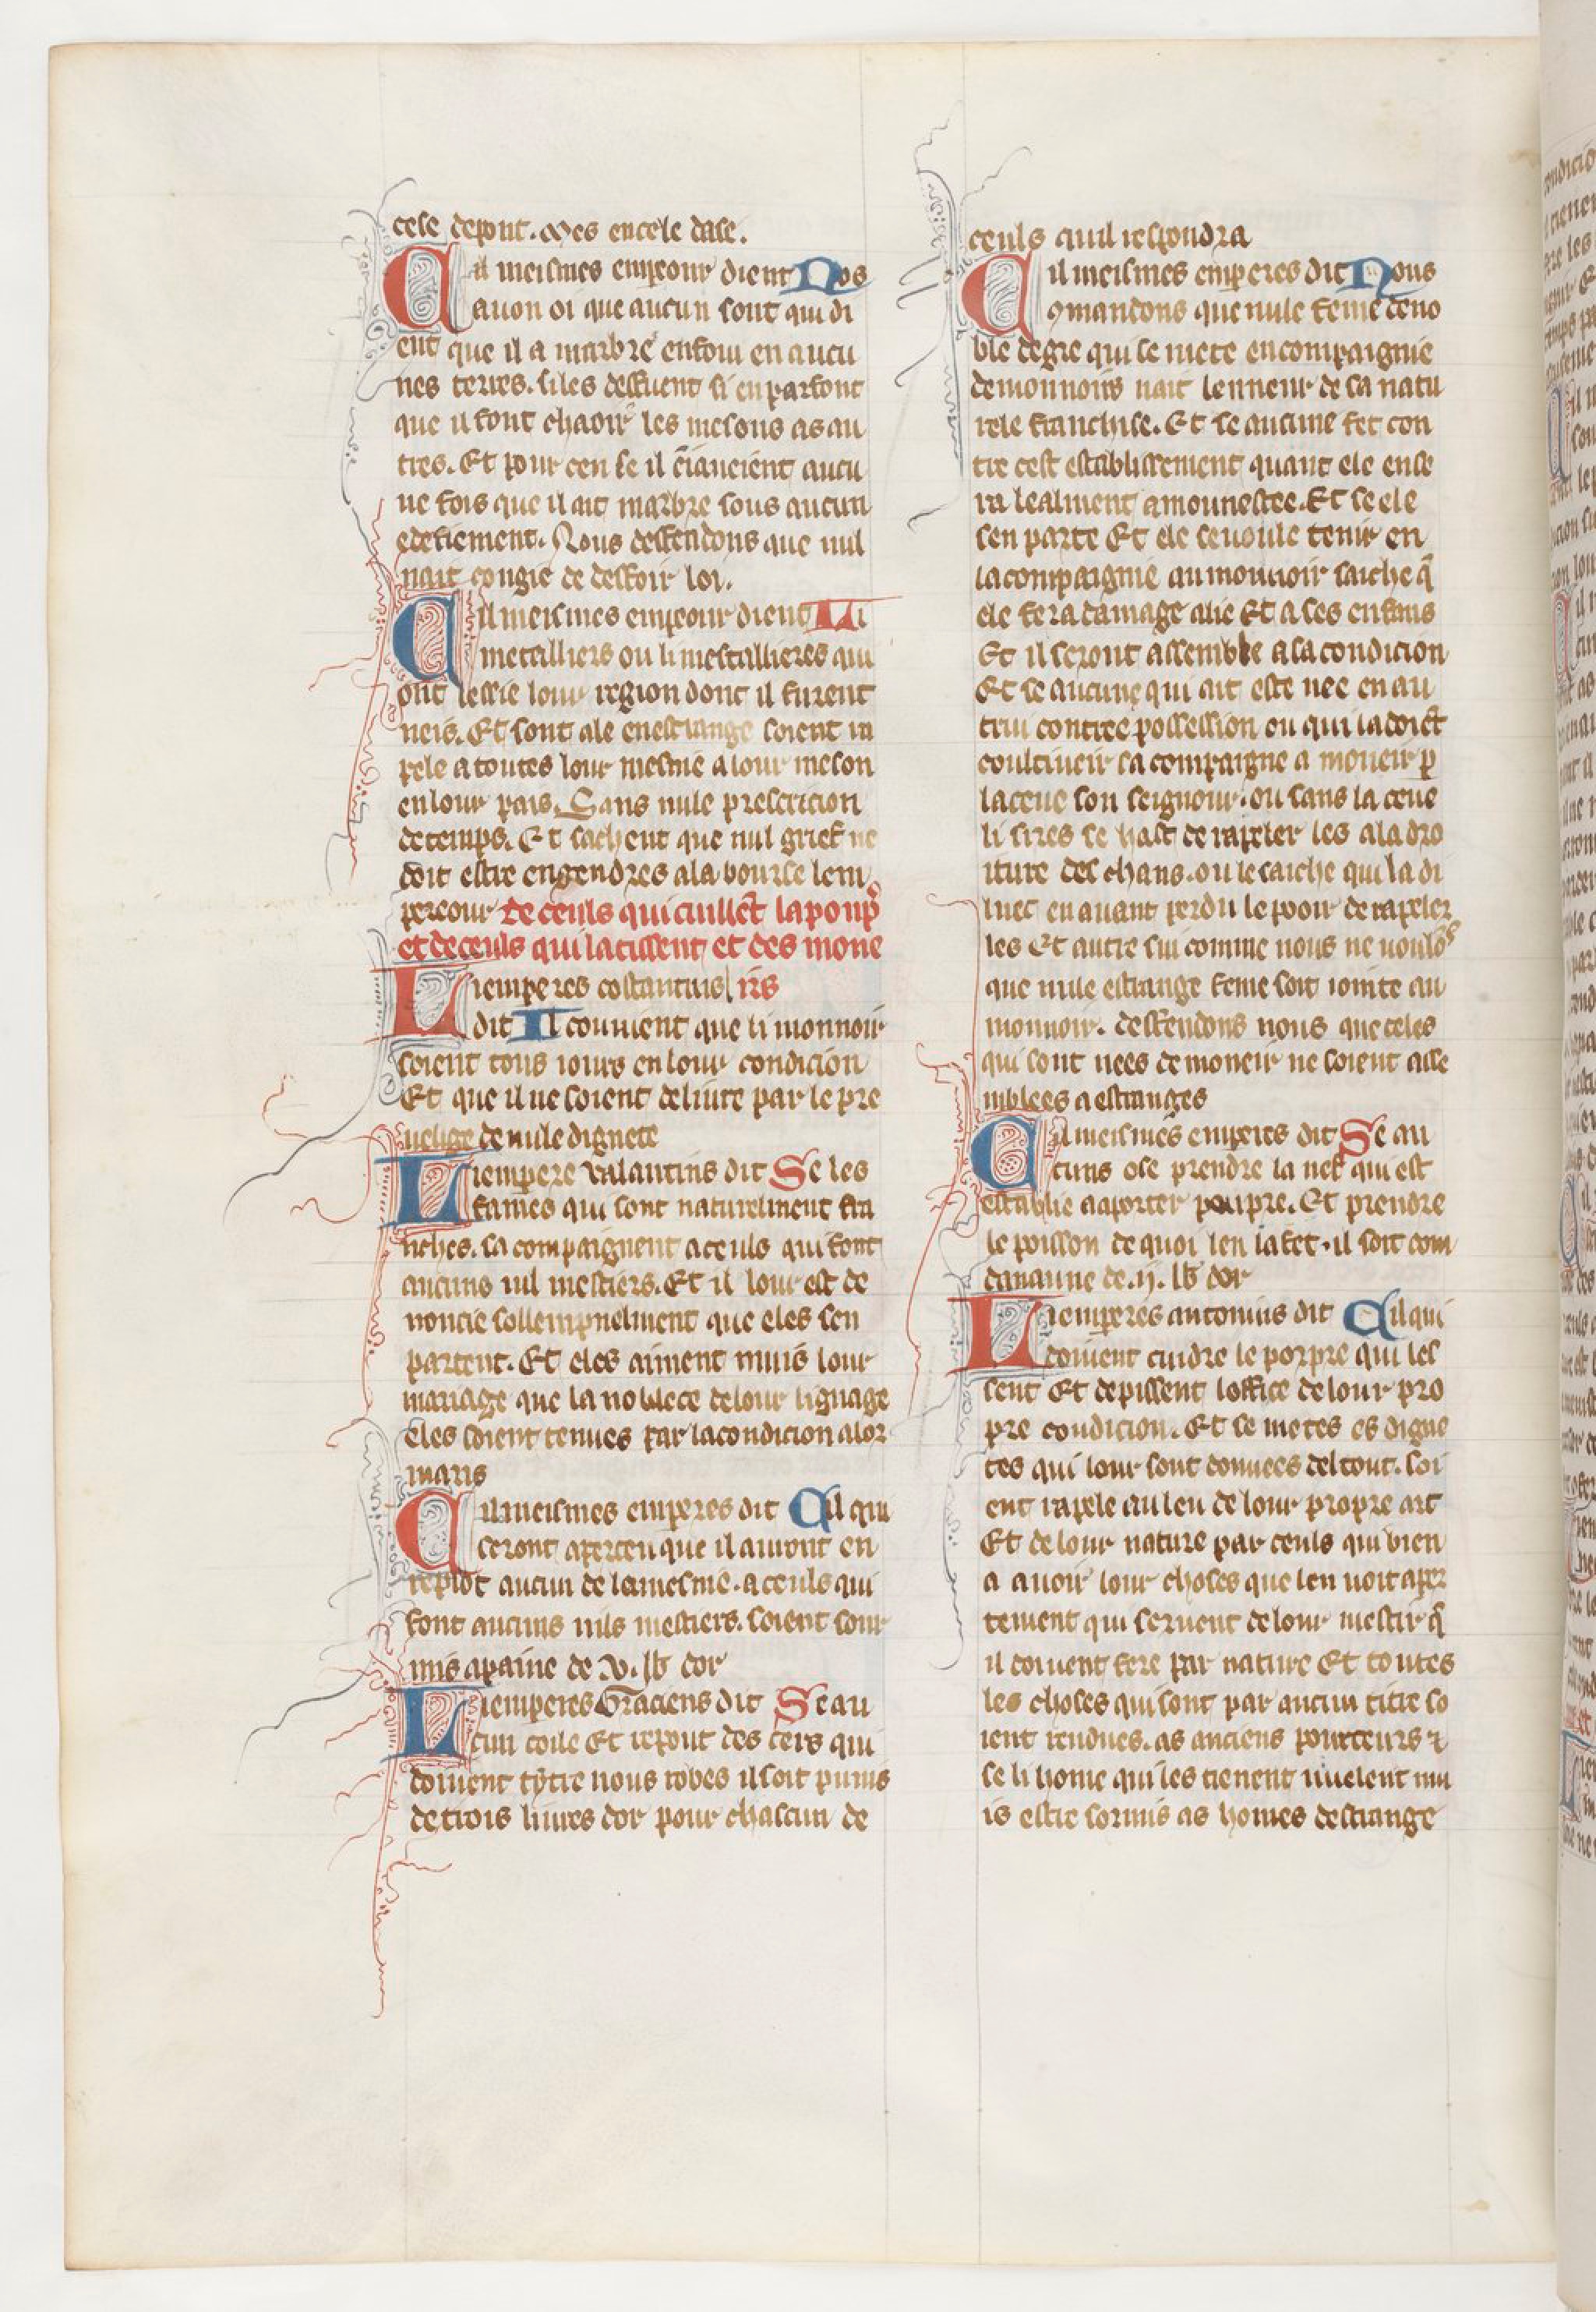 cele depont. Mes encele dale.
Cil meismes empeour dient Nos
auon oi que aucun sont qui di
ent que il a marbre enfoui en aucu
nes terres. siles deffuent si en parfont
que il font chaoir les mesons as au
tres. Et pour cen se il
ne fois que il ait marbre sous aucun
edefiement. Nous deffendons que nul
nait congie de deffoir loi.
Cil meismes empeour dient Li
metalliers ou li mestallieres qui
ont lessie lour region dont il furent
neis. Et sont ale enestrange soient ra
pele a toutes lour mesnie a lour meson
en lour pais. Sans nule prescricion
de temps. Et sachent que nul grief ne
doit estre engendres ala bourse lem
pereour De ceuls qui cuillēt la poupᵒ
et de ceuls qui la tissent et des mone
Li emperes costantins irs
dit Il conuient que li monnoir
soient tous iours en lour condicion
Et que il ne soient deliure par le pre
uelige de nule dignete
Li empere valantins dit Se les
fames qui sont naturelment fra
nches. sa compaignent a ceuls qui font
aucuns uil mestiers. Et il lour est de
noncie sollempnelment que eles sen
partent. Et eles aiment miuis lour
mariage que la noblece de lour lignage
eles soient tenues par la condicion a lor
maris
Cil meismes emperes dit Cil qui
ceront aperceu que il auront en
repiot aucun de la mesnie. a ceuls qui
font aucuns uils mestiers. soient sour
mis a paine de .v. lb dor
Li emperes Graciens dit Se au
cun coile Et repont des cers qui
doiuent tytre nous robes il soit punis
de trois liures dor pour chascun de
ceuls quil respondra
Cil meismes emperes dit Nous
ꝯmandons que nule feme de no
ble degre qui se mete en compaignie
de monnoirs nait lenneur de sa natu
rele franchise. Et se aucune fet con
tre cest establissement quant ele ense
ra lealment amounestee. Et se ele
sen parte Et ele se uoule tenir en
la compaignie au monnoir saiche q̄
ele fera damage a lie Et a ses enfans
Et il seront assemble a la condicion
Et se aucune qui ait este nee en au
trui contree possession ou qui la doiēt
coultiueir sa compaigne a moneir p
la ceue son seignour. ou sans la ceue
li sires se hast de rapeler les a la dro
iture des chans. ou le saiche qui la di
luec en auant perdu le pooir de rapeler
les Et autre sui comme nous ne uoulōs
que nule estrange feme soit iointe au
monnoir. deffendons nous que celes
qui sont nees de moneir ne soient asse
mblees a estranges
Cil meismes emperes dit Se au
cuns ose prendre la nef qui est
establie aaporter poupre. Et prendre
le poisson de quoi len la fet. il soit com
danaune de .ij. lb dor
Li emperes antonius dit Cil qui
doiuent cuidre le porpre qui les
sent Et depissent loffice de lour pro
pre condicion. Et se metes es digne
tes qui lour sont donnees deltout. soi
ent rapele au leu de lour propre art
Et de lour nature par ceuls qui bien
a auoir lour choses que len uoit aper
tement qui seruent de lour mestir q̄
il doiuent fere par nature Et toutes
les choses qui sont par aucun titre so
ient rendues. as anciens pourteurs ⁊
se li home qui les tienent uuelent mu
is estre sormis as homes destrange